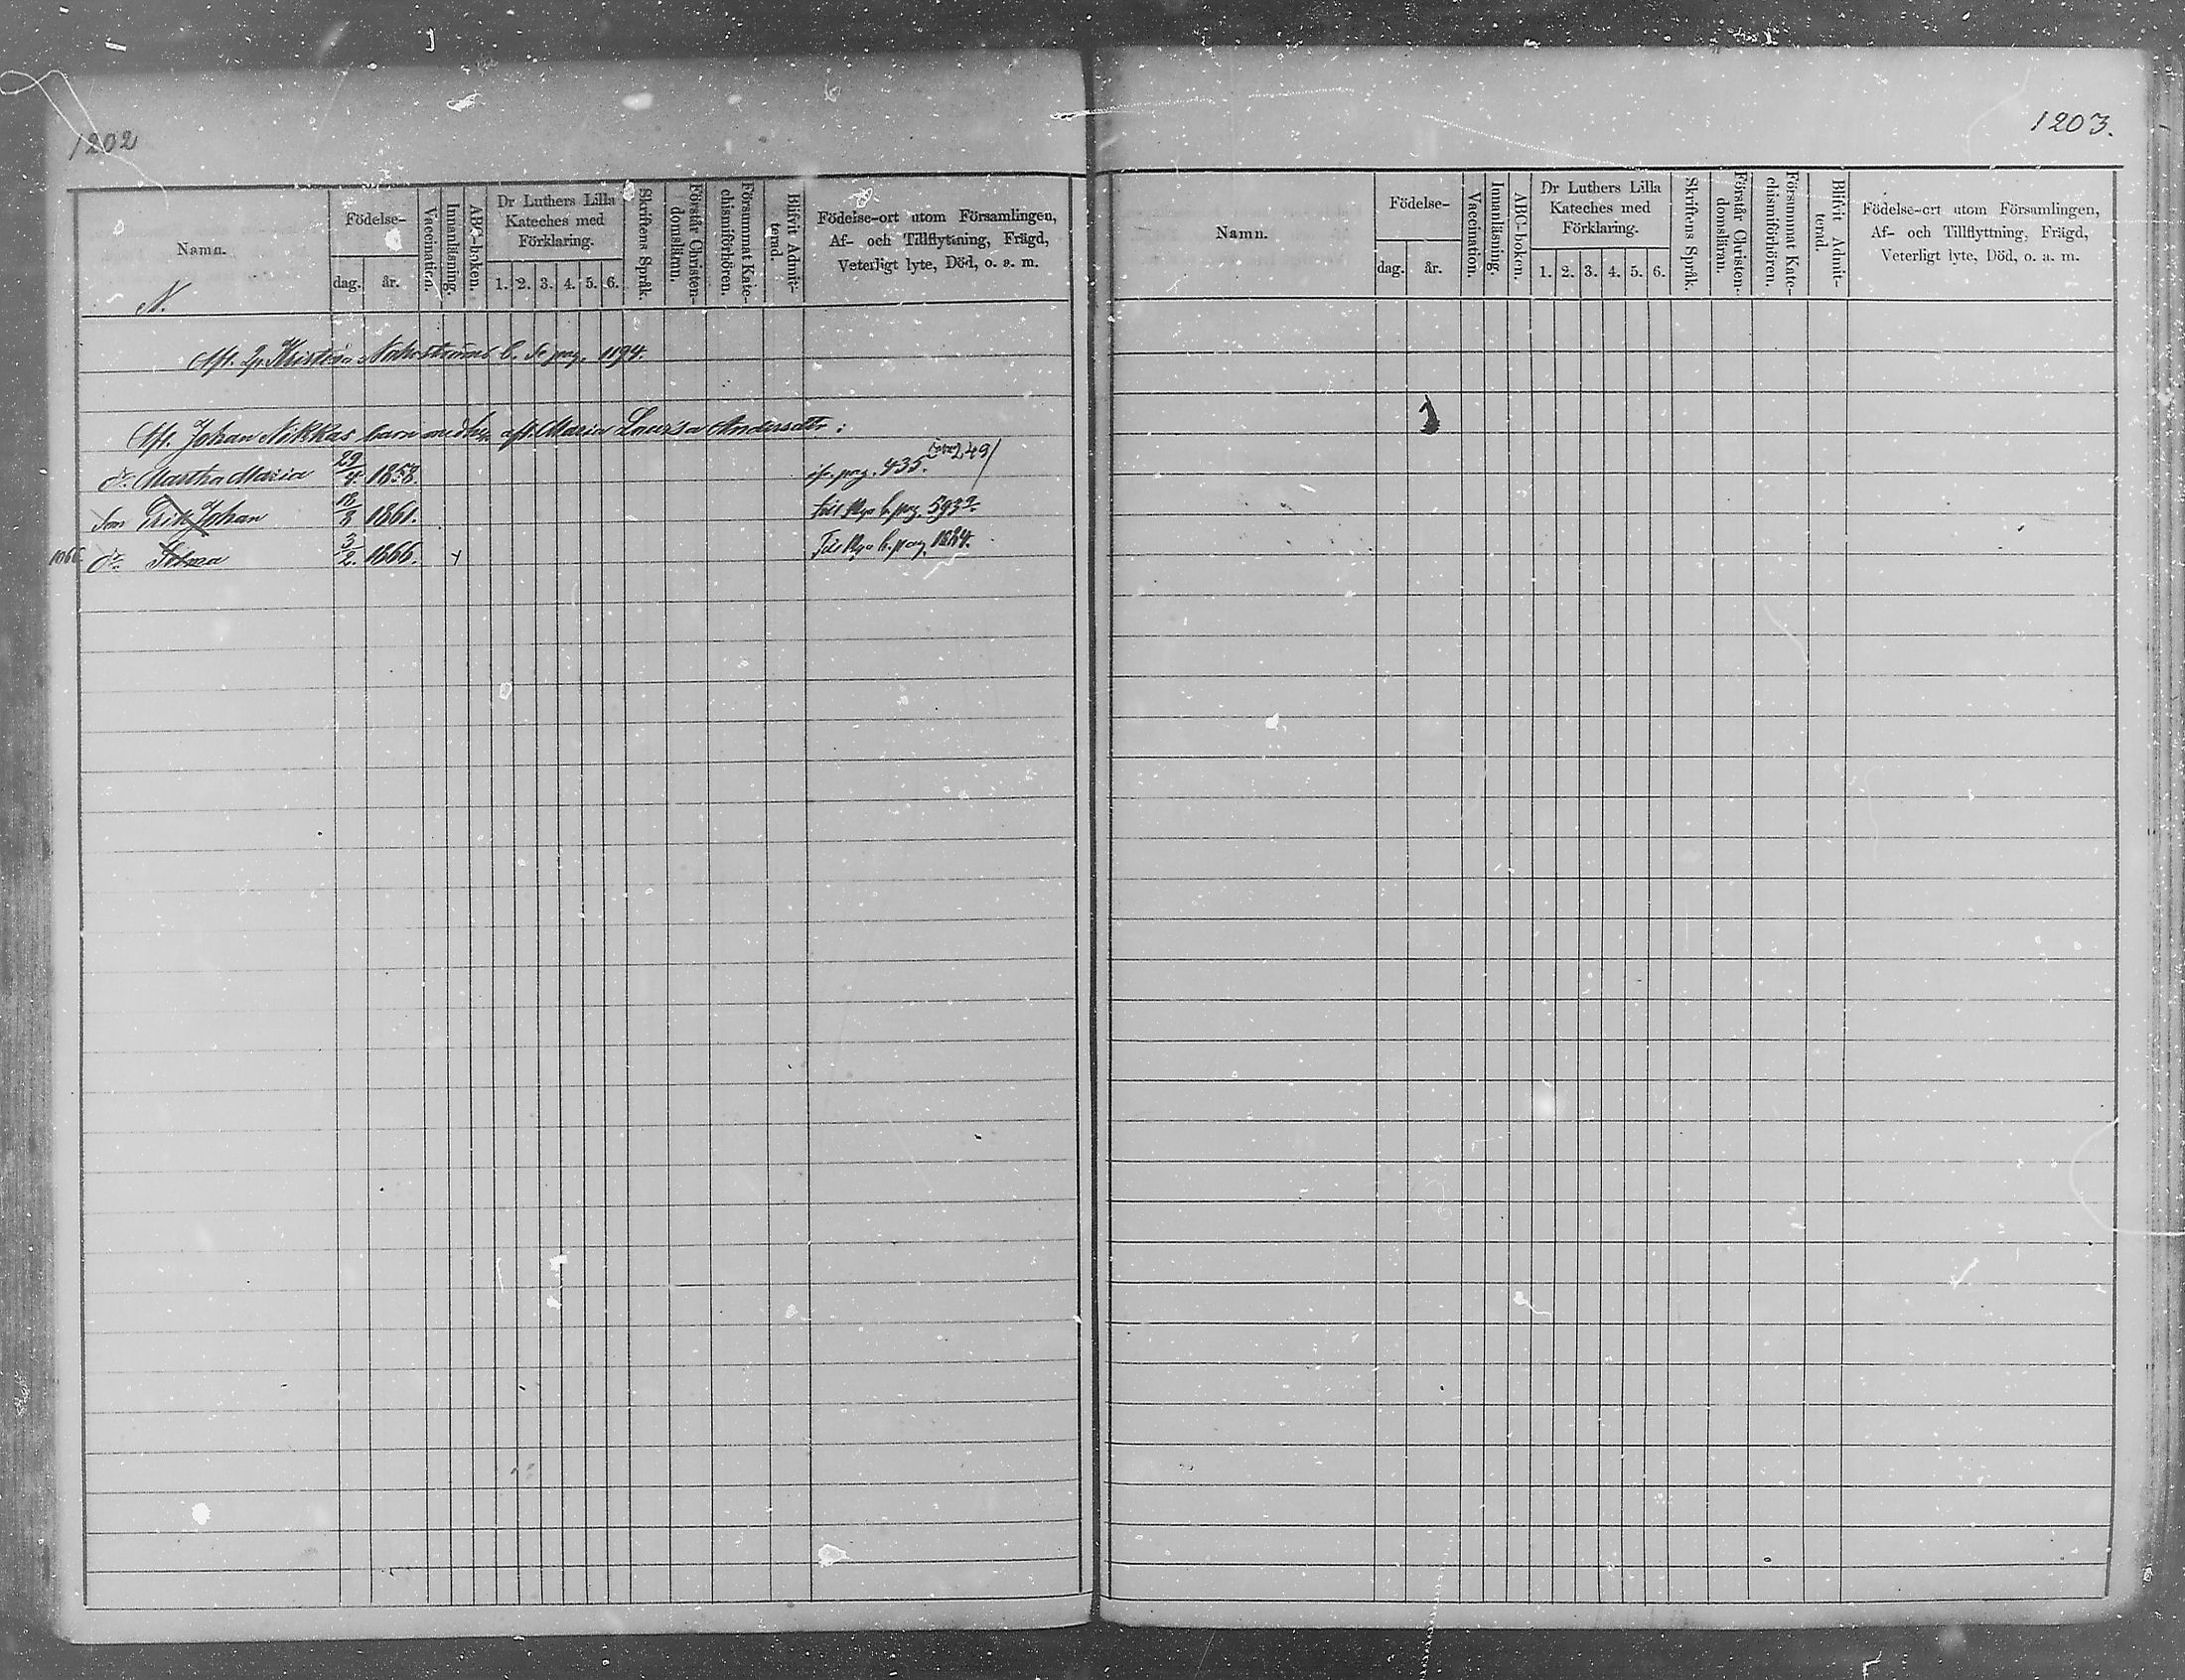 1202
Namn.
Födelse-
dag.
år.
Vaccination.
Innanläsning.
ABC-boken.
Dr Luthers Lilla
Kateches med
Förklaring.
1. 2. 3. 4. 5. 6.
Skriftens Språk.
Förstår Christen-
domsläran.
Försummat Kate-
chismiförhören.
Blifvit Admit-
terad.
Födelse-ort utom Församlingen,
Af- och Tillflyttning, Frägd,
Veterligt lyte, Död, o. s. m.
N.
Kristina b. Se pag. 1194.
Afl. Johan Nikkas barn med afl. Maria Lovisa Andersdtr:
dr. Martha Maria 29/4. 1858. pag. 435. 249/
Son Erik Johan 18/8 1861. förs. Nya b. pag. 593
1066. dr. Selma 3/2. 1866. + Förs. Nya b. pag. 1284.
1203.
Namn.
Födelse-
dag.
år.
Vaccination.
Innanläsning.
ABC-boken.
Dr Luthers Lilla
Kateches med
Förklaring.
1. 2. 3. 4. 5. 6.
Skriftens Språk.
Förstår Christen-
domsläran.
Försummat Kate-
chismiförhören.
Blifvit Admit-
terad.
Födelse-ort utom Församlingen,
Af- och Tillflyttning, Frägd,
Veterligt lyte, Död, o. s. m.